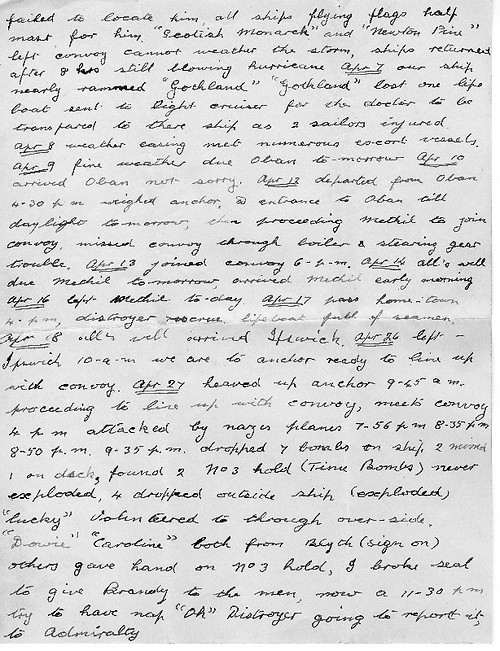 failed to locate him, all ships flying flags half
mast for him, "Scotish Monarck" and "Newton Pine"
left convoy cannot weather the storm, ships returned
after 8 hrs still blowing hurricane Apr 7 our ship
nearly rammed "Gothland" "Gothland" lost one life
boat sent to light cruiser for the doctor to be
transpared to there ship as 2 sailors injured
Apr 8 weather easing met numerous escort vessels.
Apr 9 fine weather due Oban to-morrow Apr 10
arrived Oban not sorry. Apr 12 departed from Oban
4-30 p m weighed anchor, @ entrance to Oban till
daylight to-morrow, then proceeding Methil to join
convoy, missed convoy through boiler & stearing gear
trouble. Apr 13 joined convoy 6-p-m. Apr 14 all's well
due Methil to-morrow, arrived Methil early morning
Apr 16 left Methil to-day. Apr 17 pass home-town
4-p.m, distroyer rescue lifeboat full of seamen.
Apr 18 all's well arrived Ipswich. Apr 26 left -
Ipswich 10-a-m we are to anchor ready to line up
with convoy. Apr 27 heaved up anchor 9-45 a m.
proceeding to line up with convoy, meets convoy
4 p m attacked by nazes planes 7-56 p m 8-35 p m
8-50 p.m. 9-35 p.m. dropped 7 bombs on ship, 2 missed
1 on deck, found 2 No 3 hold (Time Bombs) never
exploded, 4 dropped outside ship (exploded)
"Lucky" Volunteered to through over-side.
"Dowie" "Caroline" both from Blyth (sign on)
others gave hand on No 3 hold, I broke seal
to give Brandy to the men, now a 11-30 pm
try to have nap "Oh" Distroyer going to report it,
to Admiralty